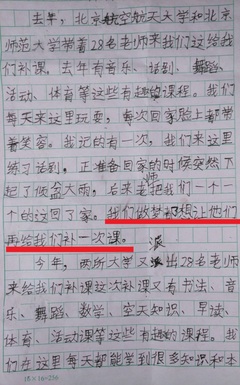 去年，北京航空航天大学和北京
师范大学带着28名老师来我们这给我
们补课。去年有音乐、话剧、舞蹈、
活动、体育等这些有趣的课程。我们
每天来这里玩耍，每次回家脸上都带
着笑容。我记的有一次，我们来这里
练习话剧。正准备回家的时候突然下
起了倾盆大雨。后来老师把我们一个一
个的送回了家。我们做梦都想让他们
再给我们补一次课。
今年，两所大学又派出28名老师
来给我们补课这次补课又有书法、音
乐、舞蹈、数学、空天知识、早读、
体育、活动课等这些有趣的课程。我
们在这里每天都能学到很多知识和本
18×16=256